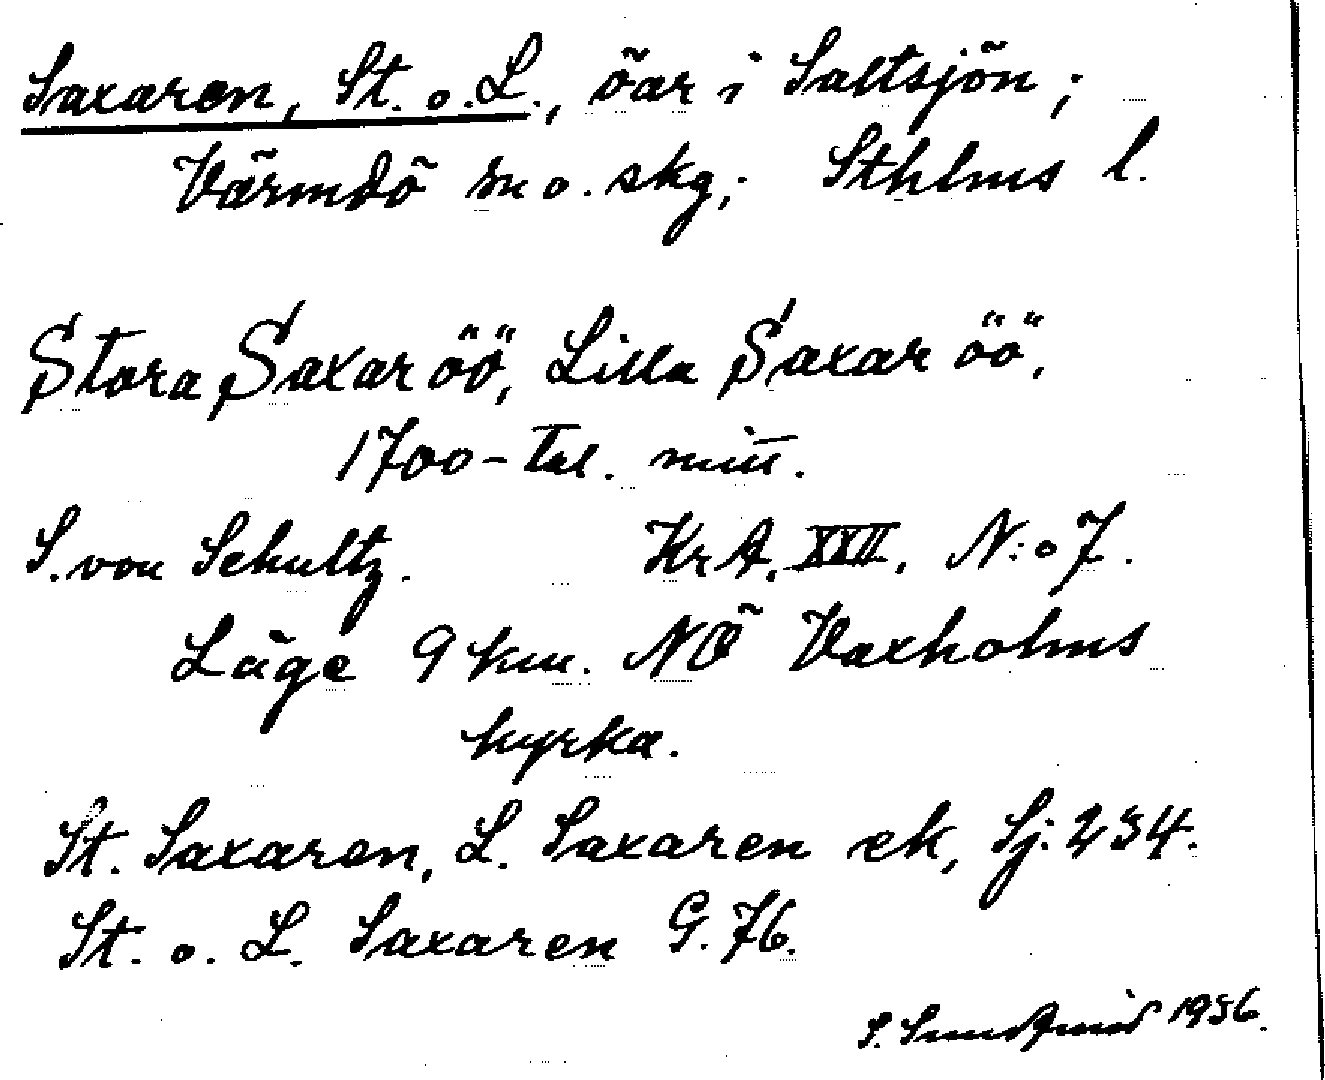 Saxaren, St. o. L., öar i Saltsjön;
Värmdö sn o. skg; Sthlms l.
Stora Saxar öö, Lilla Saxar öö,
1700-tal. mitt.
S. von Schultz. KrA. XVII. N:o 7.
Läge 9 km. NÖ Vaxholms
kyrka.
St. Saxaren, L. Saxaren ek, Sj. 234.
St. o. L. Saxaren G. 76.
S. 1936.